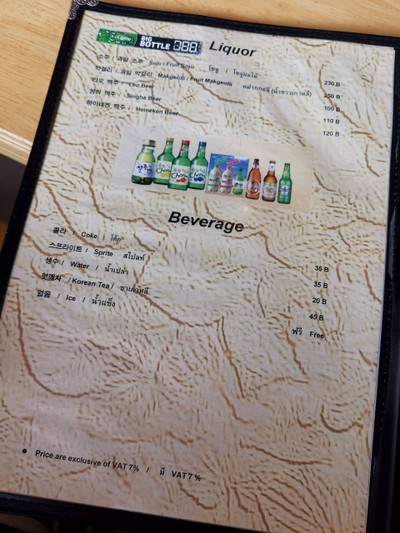 BIG BOTTLE
Liquor
소주 / 과일 소주 Soju / Fruit Soju / โซจู / โซจูผลไม้ 230 B
막걸리 / 과일 막걸리 Makgeolli / Fruit Makgeolli 250 B
리오 맥주 / Leo Beer 100 B
씽하 맥주 / Singha Beer 110 B
하이네켄 맥주 / Heineken Beer 120 B
Beverage
콜라 / Coke / โค้ก 35 B
스프라이트 / Sprite สไปลท์ 35 B
생수 / Water / น้ำเปล่า 20 B
붓메차 / Korean Tea / ชาเกาหลี 45 B
얼음 / Ice / น้ำแข็ง ฟรี Free
● Price are exclusive of VAT 7% / มี VAT 7 %